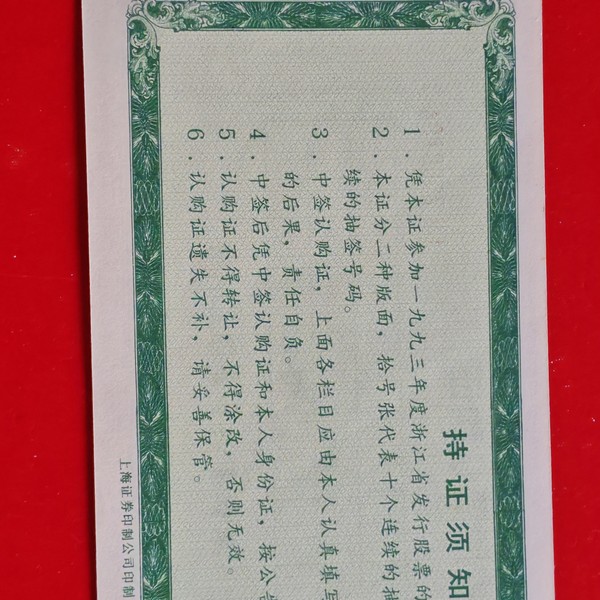 持证须知
1．凭本证参加一九九三年度浙江省发行股票的
2．本证分二种版面，拾号张代表十个连续的抽
续的抽签号码。
3．中签认购证，上面各栏目应由本人认真填写
的后果，责任自负。
4．中签后凭中签认购证和本人身份证，按公告
5．认购证不得转让，不得涂改，否则无效。
6．认购证遗失不补，请妥善保管。
上海证券印制公司印制